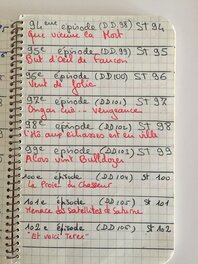 94eme épisode (DD.98) ST 94
Que vienne la Mort
95e épisode (DD.99) ST 95
But d'Œil de Faucon
96e épisode (DD100) ST 96
Vent de folie
97e épisode (DD101) ST 97
Ongar Lié - Vengeance
98e épisode (DD102) ST 98
ont en ville
99e épisode (DD103) ST 99
Alors vint Bulldozer
100e épisode (DD104) ST 100
La Proie du Chasseur
101e épisode (DD105) ST 101
Menace des Satellites de Saturne
102e épisode (DD106) ST 102
"Et voici Terex"